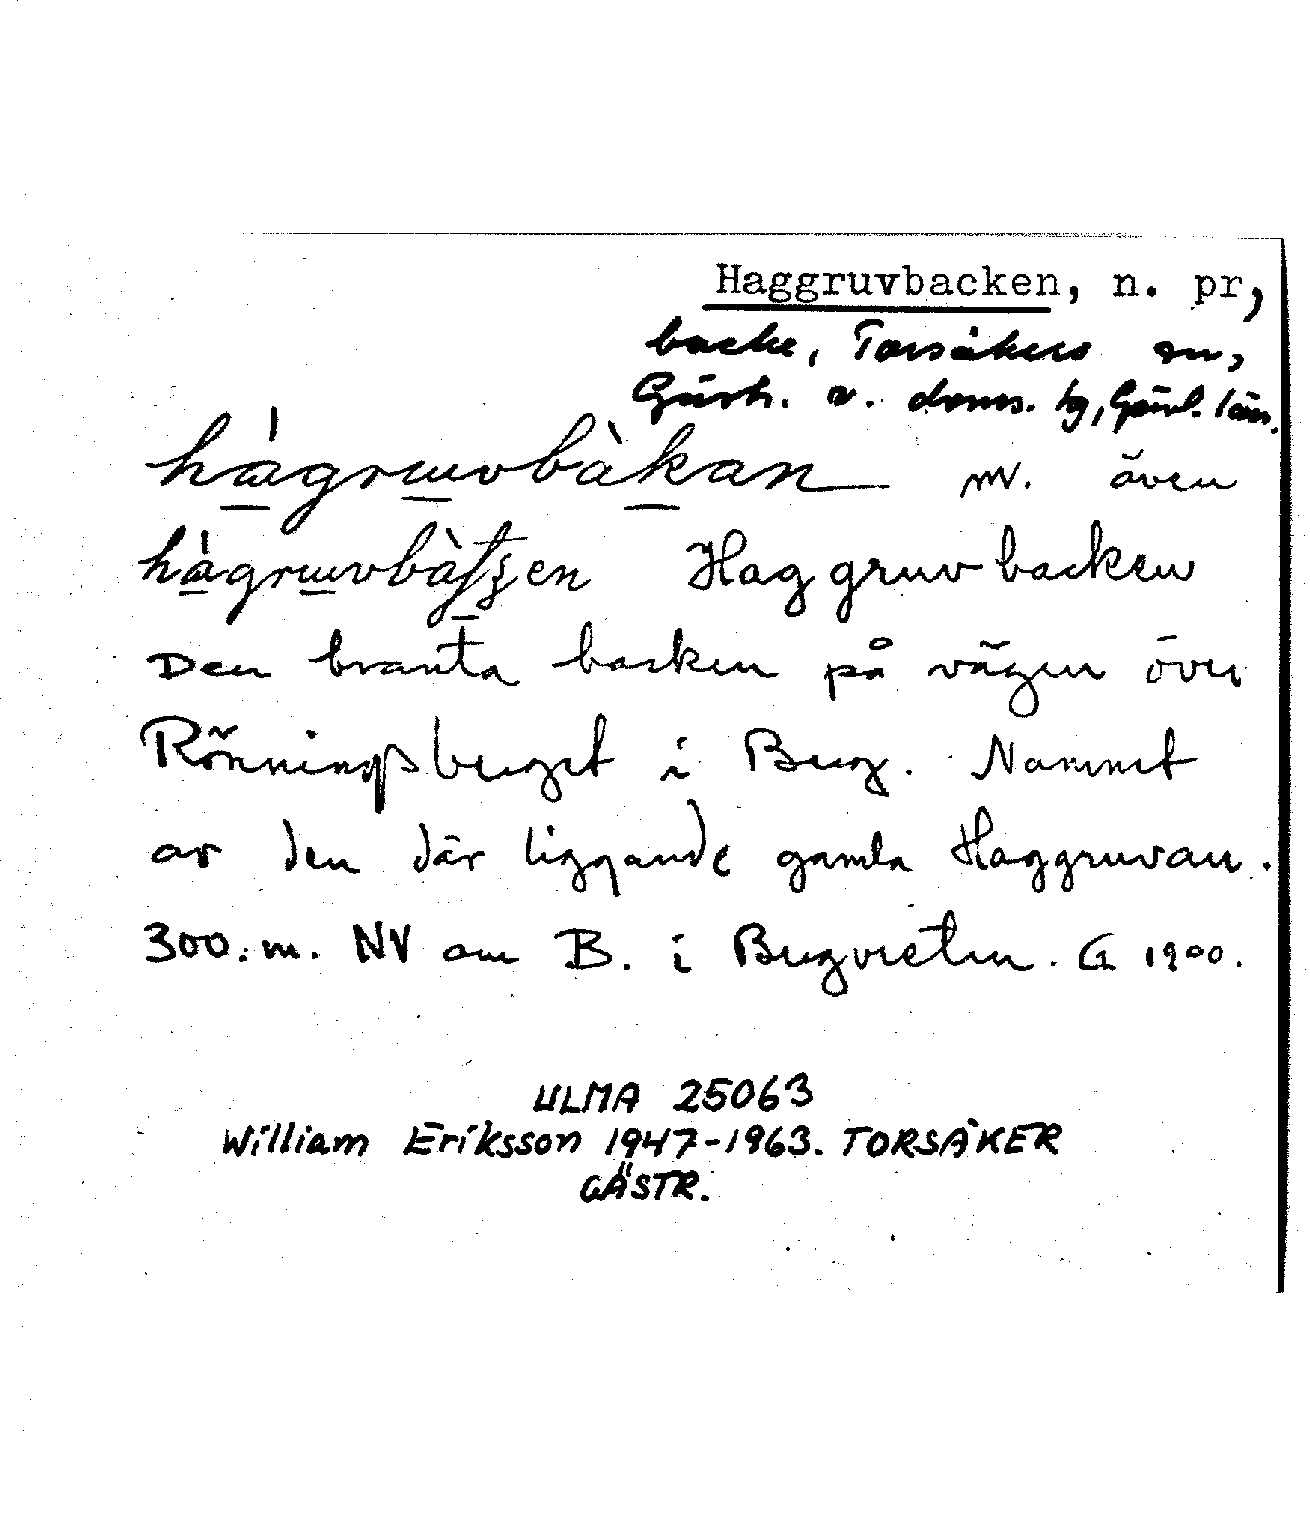 Haggruvbacken, n. pr,
backe, Torsåkers sn,
Gästr. v. doms. tg, Gävl. län.
hàgruvbàkan mv. även
hàgruvbàʃʒen Haggruvbacken
Den branta backen på vägen över
Rönningsberget i Berg. Namnet
av den där liggande gamla Haggruvan.
300.m. NV om B. i Bergvreten. G 1900.
ULMA 25063
William Eriksson 1947-1963. TORSÅKER
GÄSTR.